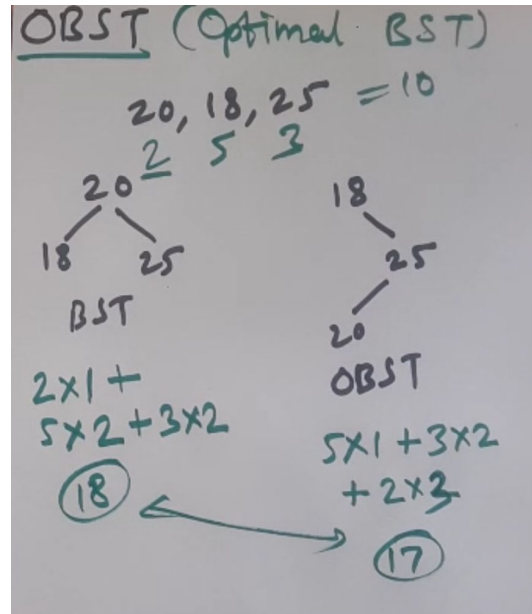 OBST (Optimal BST)
20, 18, 25 = 10
2 5 3
20
18 25
BST
2x1 +
5x2 + 3x2
18
18
25
20
OBST
5x1 + 3x2
+ 2x3
17